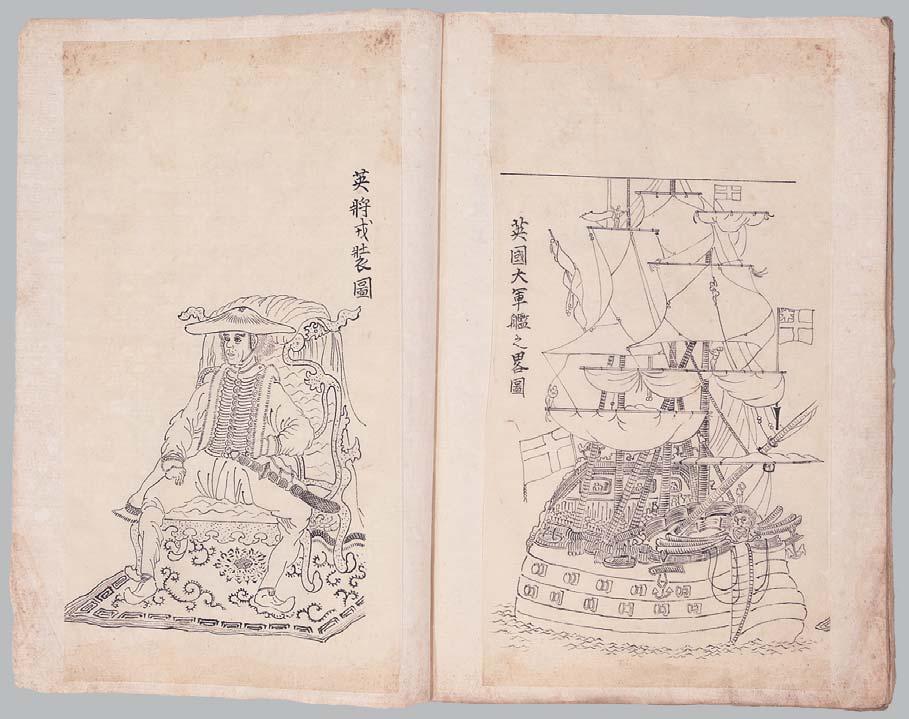 英國大軍艦之畧圖
英將戎裝圖